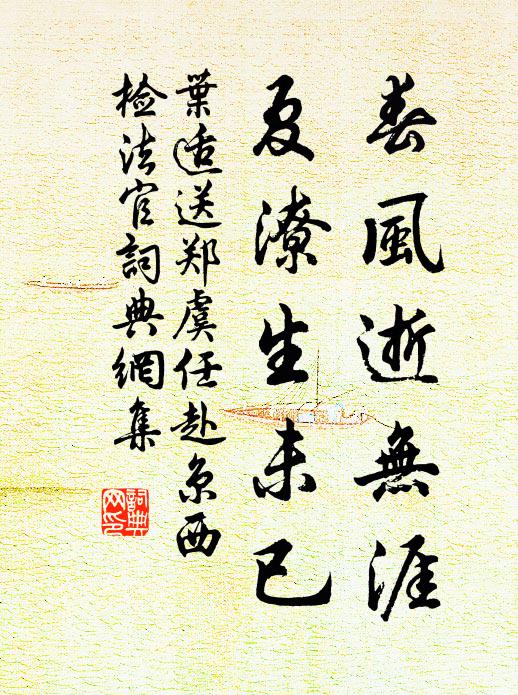 春風逝無涯
夏潦生未已
葉适送郑虞任赴京西
检法官詞典網集
詞典
网印